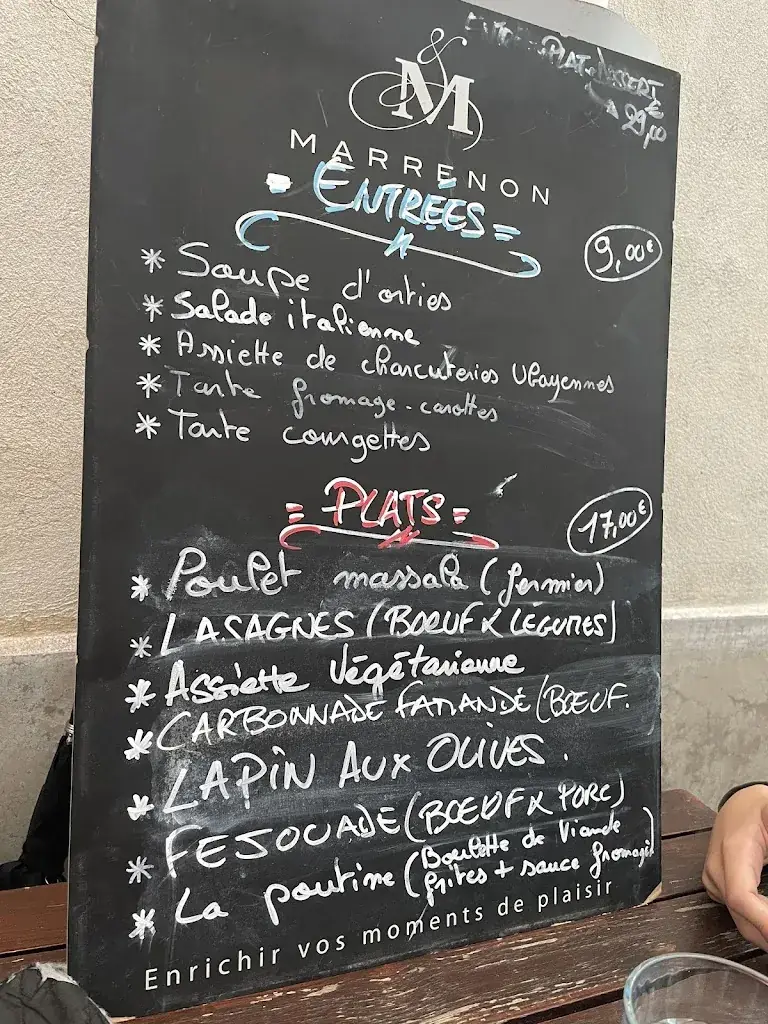 PLAT DESSERT
29,00 €
&
M
MARRENON
= ENTRÉES =
9,00€
* Soupe d'orties
* Salade italienne
* Assiette de charcuteries Ubayennes
* Tarte fromage - carottes
* Tarte courgettes
= PLATS =
17,00€
* Poulet massala (fermier)
* LASAGNES (BOEUF & LÉGUMES)
* Assiette Végétarienne
* CARBONNADE FAMANDE (BOEUF.
* LAPIN AUX OLIVES.
* FEJOUADE (BOEUF & PORC)
* La poutine (Boulette de Viande
frites + sauce fromage)
Enrichir vos moments de plaisir